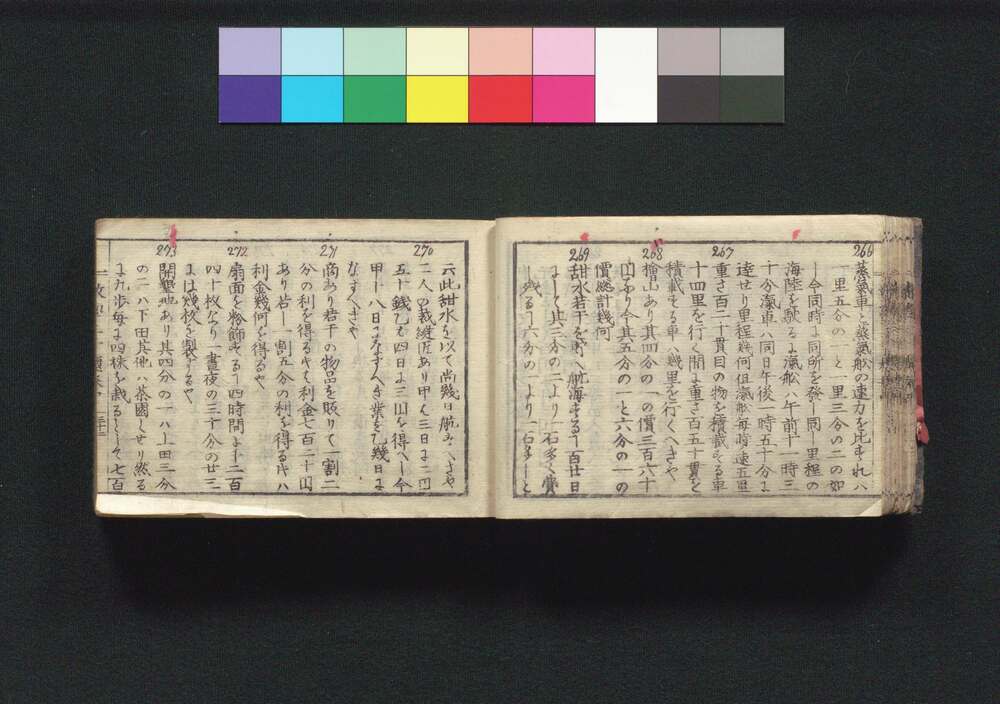 266
蒸氣車ト蒸氣舩の速力を比すれハ
一里五分の一と一里三分の二の如
し今同時に同所を發し同し里程の
海陸を馳るに滊舩ハ午前十一時三
十分滊車ハ同日午後一時五十分に
達せり里程幾何但滊舩毎時速五里
267
重さ百二十貫目の物を積載する車
十四里を行く間に重さ百五十貫を
積載する車ハ幾里を行くへきや
268
檜山あり其四分の一の價三百六十
円なり今其五分の一と六分の一の
價総計幾何
269
甜水若干を貯へ航海する丁百廿日
にして其三分の二より一石多く費
し残る丁六分の一より一石多しと
云此甜水を以て尚幾日航すへきや
270
二人の裁縫匠あり甲ハ三日に二円
五十銭乙ハ四日に三円を得へし今
甲十八日になすへき業を乙幾日に
なすへきや
271
商あり若干の物品を販りて一割二
分の利を得るときハ利金七百二十円
あり若し一割五分の利を得るときハ
利金幾何を得るや
272
扇面を粉飾する丁四時間に十二百
四十枚なり一晝夜の三十分の廿三
にハ幾枚を製するや
273
開墾地あり其四分の一ハ上田三分
の二ハ下田其他ハ茶園とせり然る
に九歩毎に四株を栽るとして七百